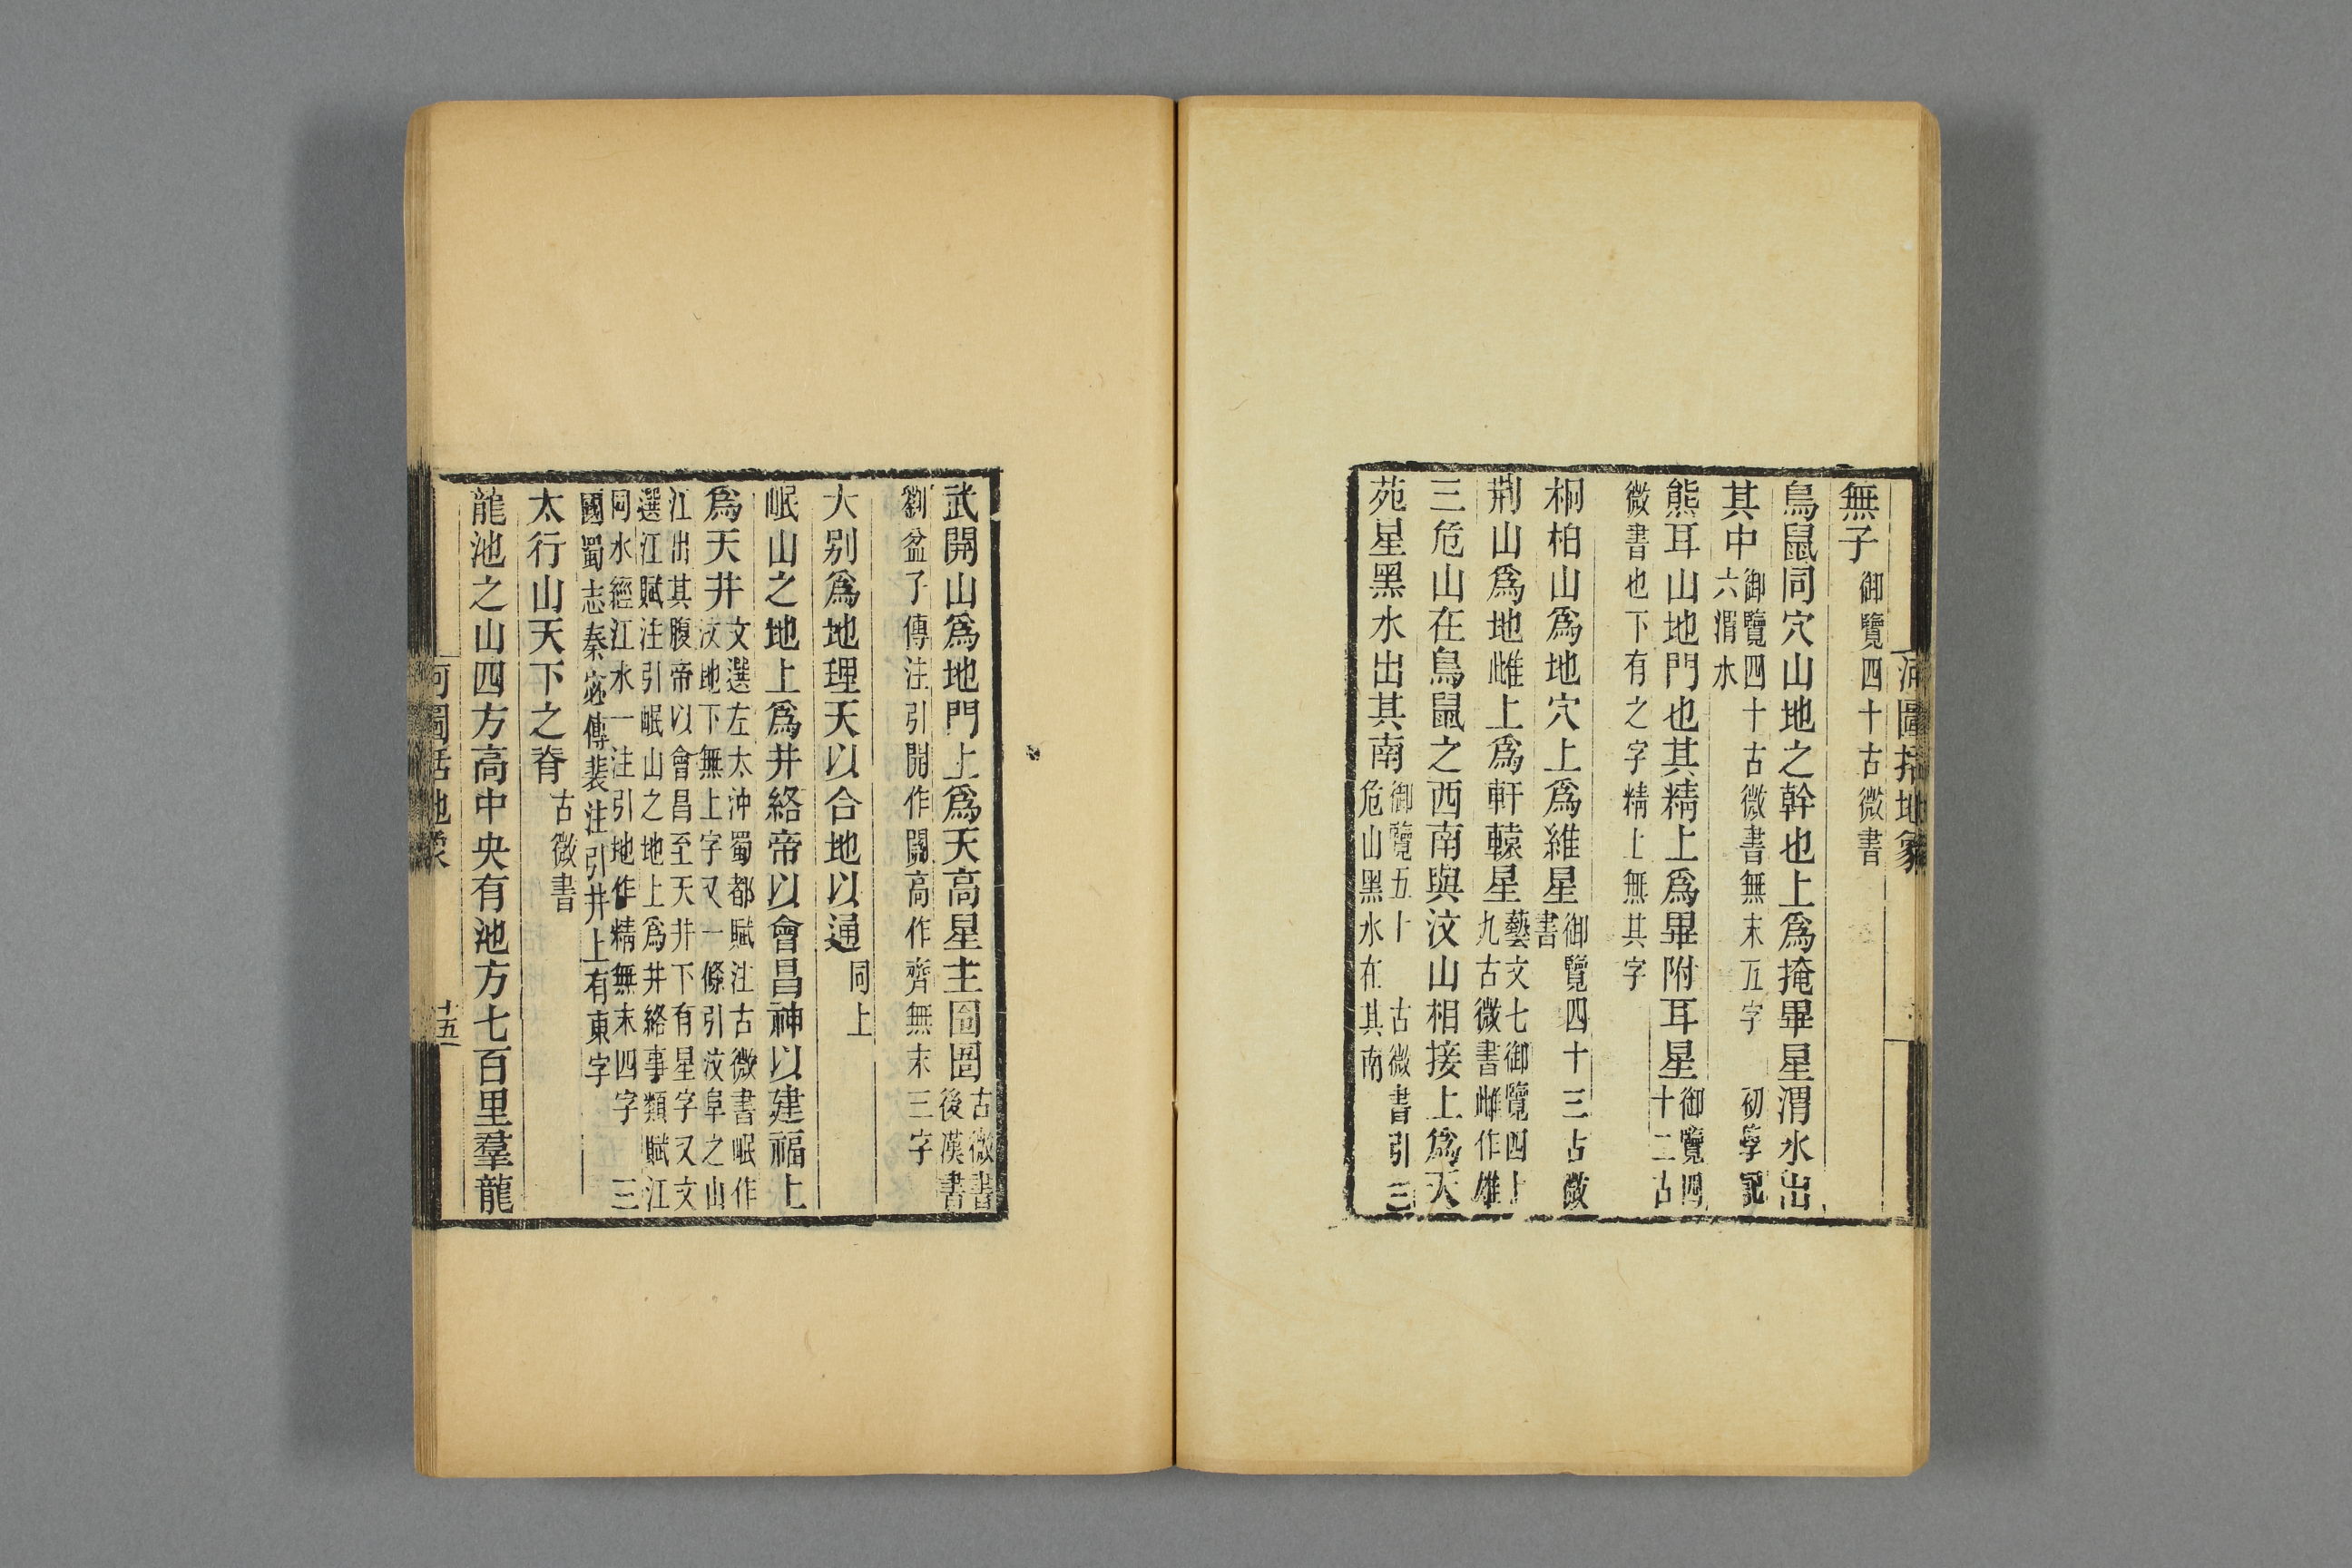 河圖括地象
無子御覽四十古微書
鳥鼠同穴山地之幹也上爲掩畢星渭水出
其中御覽四十古微書無末五字 初學記六渭水
熊耳山地門也其精上爲畢附耳星御覽四十二古
微書也下有之字精上無其字
桐柏山爲地穴上爲維星御覽四十三古微書
荆山爲地雌上爲軒轅星藝文七御覽四十九古微書雌作雄
三危山在鳥鼠之西南與汶山相接上爲天
苑星黑水出其南御覽五十 古微書引三危山黑水在其南
武開山爲地門上爲天高星主囹圄古微書後漢書
劉盆子傳注引開作闢高作齊無末三字
大别爲地理天以合地以通同上
岷山之地上爲井絡帝以會昌神以建福上
爲天井文選左太沖蜀都賦注古微書岷作汶地下無上字又一條引汶阜之山
江出其腹帝以會昌至天井下有星字又文選江賦注引岷山之地上爲井絡事類賦江
同水經江水一注引地作精無末四字 三國蜀志秦宓傳裴注引井上有東字
太行山天下之脊古微書
龍池之山四方高中央有池方七百里羣龍
河圖括地象
十五